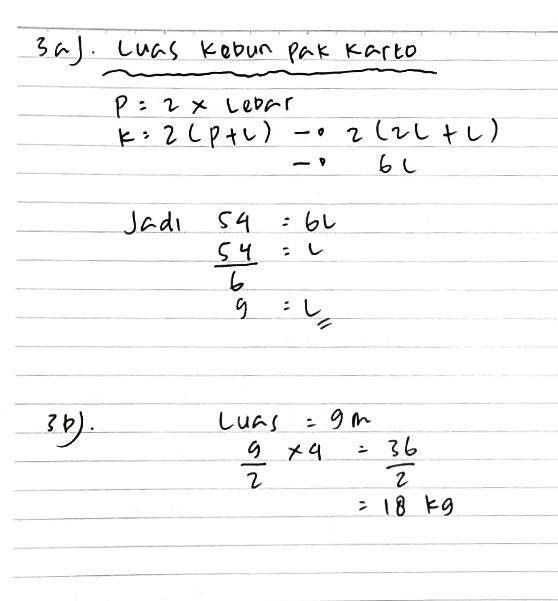 3a). Luas Kebun Pak Karto
P = 2 x Lebar
K = 2(P+L) → 2(2L + L)
→ 6L
Jadi 54 = 6L
54/6 = L
9 = L
3b). Luas = 9m
9/2 x 4 = 36/2
= 18 kg